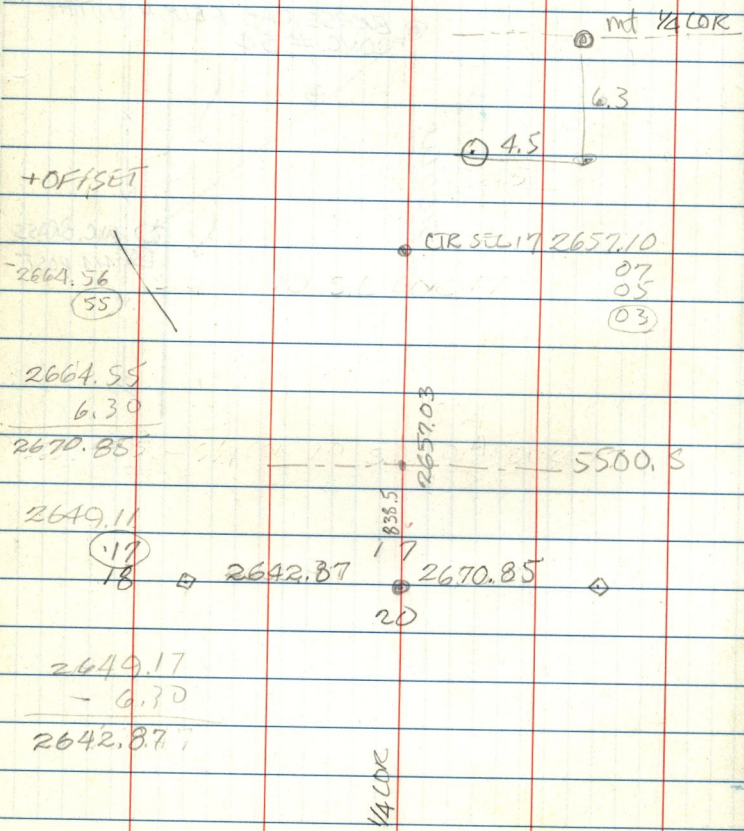 mt 1/4 COR
6.3
4.5
+OFFSET
CTR SEC 17 2657.10
07
05
03
2664.56
55
2664.55
6.30
2670.85
2657.03
5500. S
838.5
2649.11
.17
17
18 2642.87 2670.85
20
2649.17
- 6.30
2642.87
1/4 COR